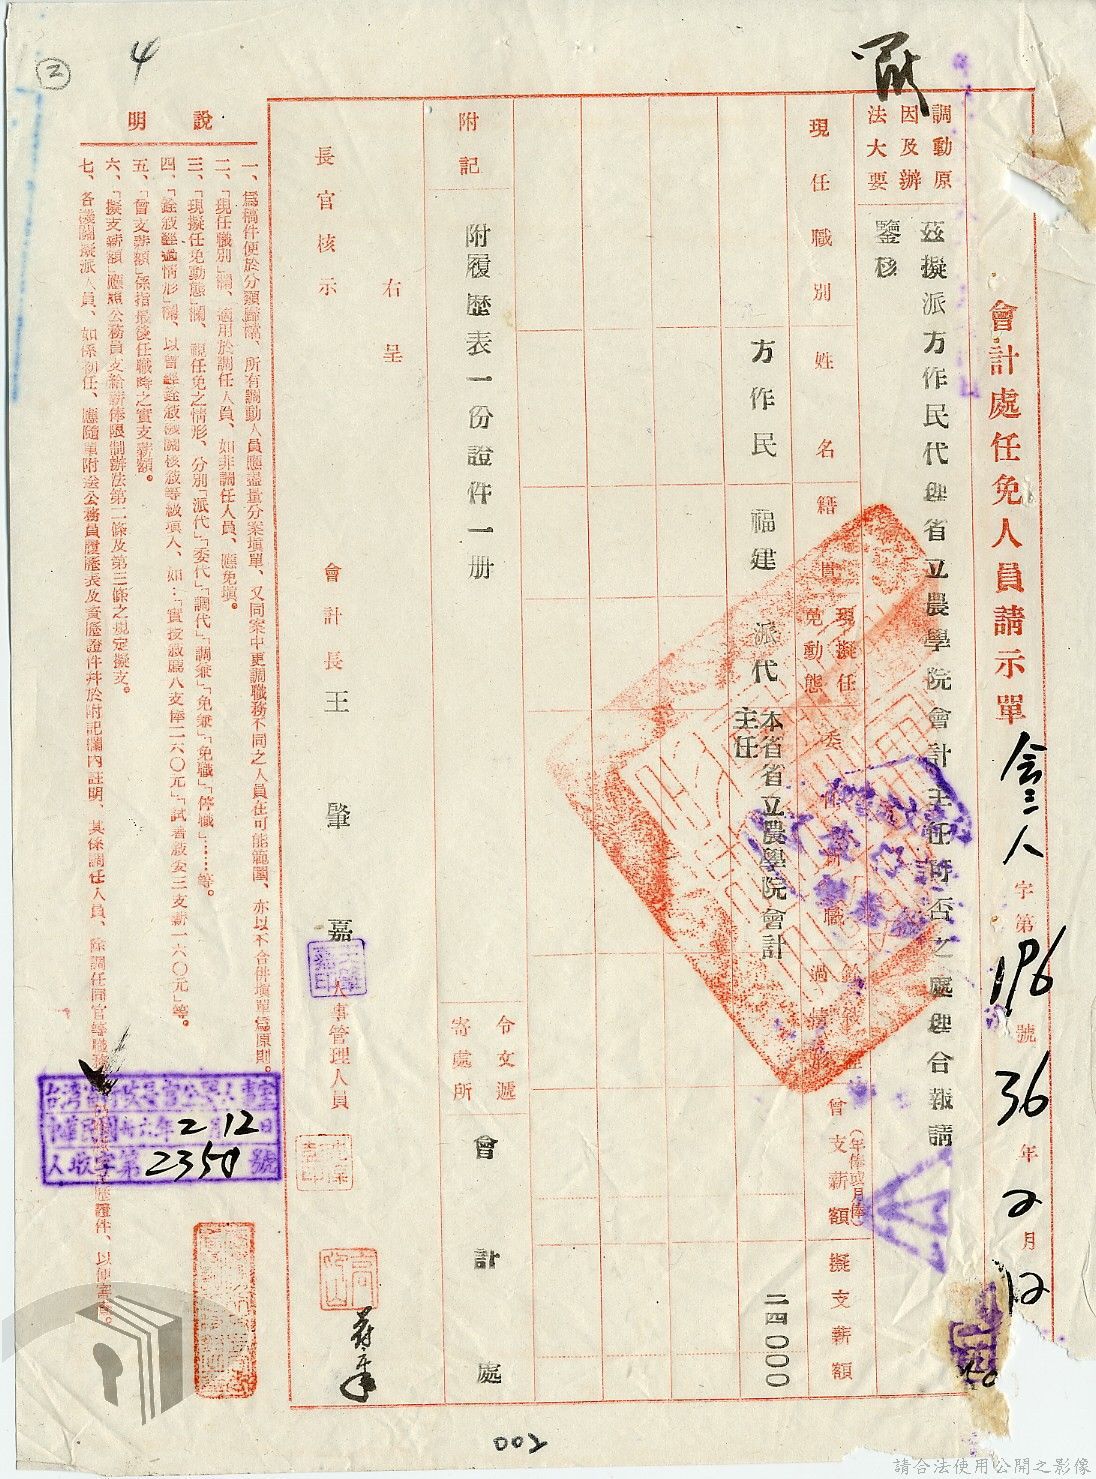 4
2
會計處任免人員請示單
會三人字第196號36年2月12
調動原
因及辦
法大要
茲擬派方作民代理省立農學院會計主任所否之處理合報請
鑒核
現任職別
姓名
籍貫
現擬任
免動態
曾支薪額
(年俸或月俸)
擬支薪額
方作民
福建
派代
本省省立農學院會計
主任
二四〇〇〇
附記
附履歷表一份證件一册
令文遞
寄處所
會計處
右呈
長官核示
會計長王肇嘉
人事管理人員
說明
一、為稿件便於分類歸檔、所有調動人員應儘量分案填單、又同案中更調職務不同之人員在可能範圍、亦以不合併填單為原則。
二、「現任職別」欄、適用於調任人員、如非調任人員、應免填。
三、「現擬任免動態」欄、視任免之情形、分別「派代」「委代」「調代」「調兼」「免兼」「免職」「停職」……等。
四、「銓敍經過情形」欄、以曾經銓敍機關核敍等級填入、如：「實技敍薦八支俸二六〇元」「試署敍委三支薪一六〇元」等。
五、「曾支薪額」係指最後任職時之實支薪額。
六、「擬支薪額」應照公務員支給薪俸限制辦法第二條及第三條之規定擬支。
七、各機關擬派人員、如係初任、應隨單附送公務員履歷表及資歷證件幷於附記欄內註明、其係調任人員、除調任同官等職務
歷證件、以便審查。
台灣省行政長官公署人事室
中華民國卅六年2月12日
人收字第2350號
002
請合法使用公開之影像